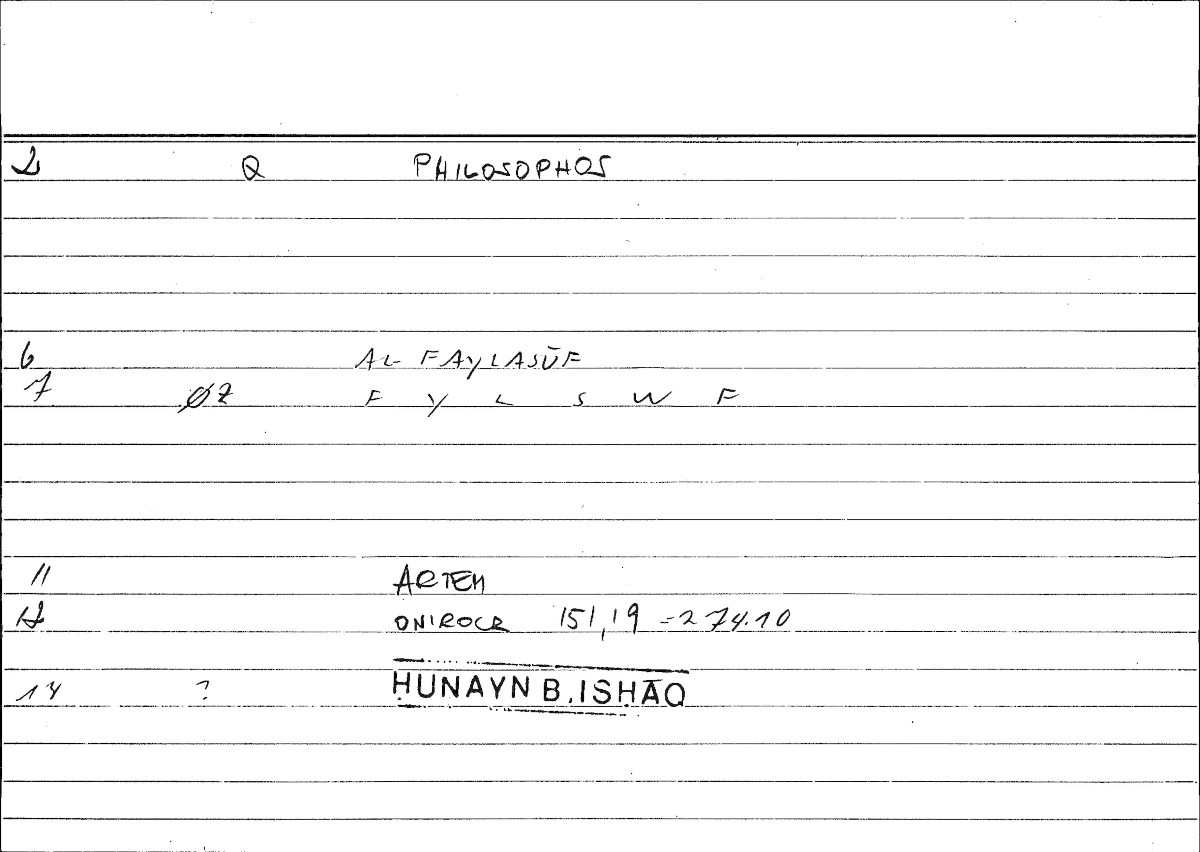 2 Q PHILOSOPHOS
6 AL FAYLASŪF
7 ØZ F Y L S W F
11 ARTEM
12 ONIROCR 151,19 = 274.10
14 ? ḤUNAYN B. ISḤĀQ